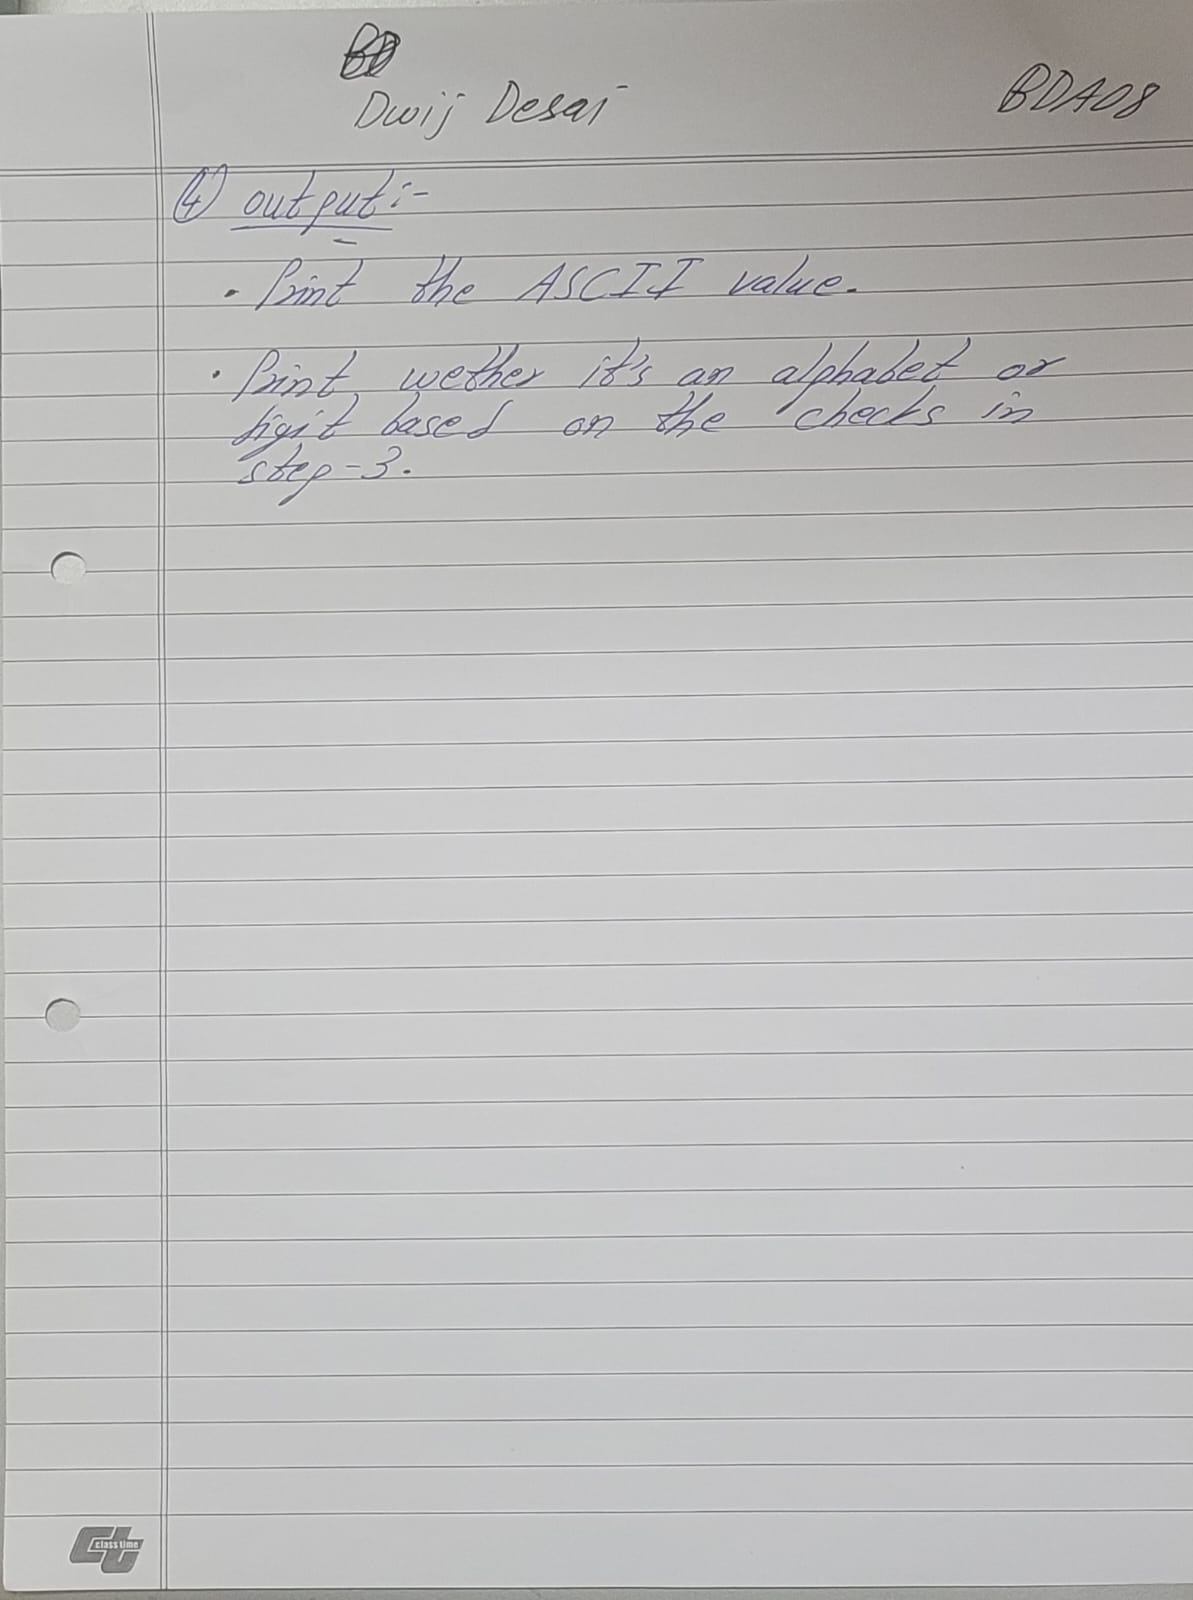 Dwij Desai
BDA08
④ output :-
• Print the ASCII value.
• Print wether it's an alphabet or
digit based on the checks in
step-3.
class time